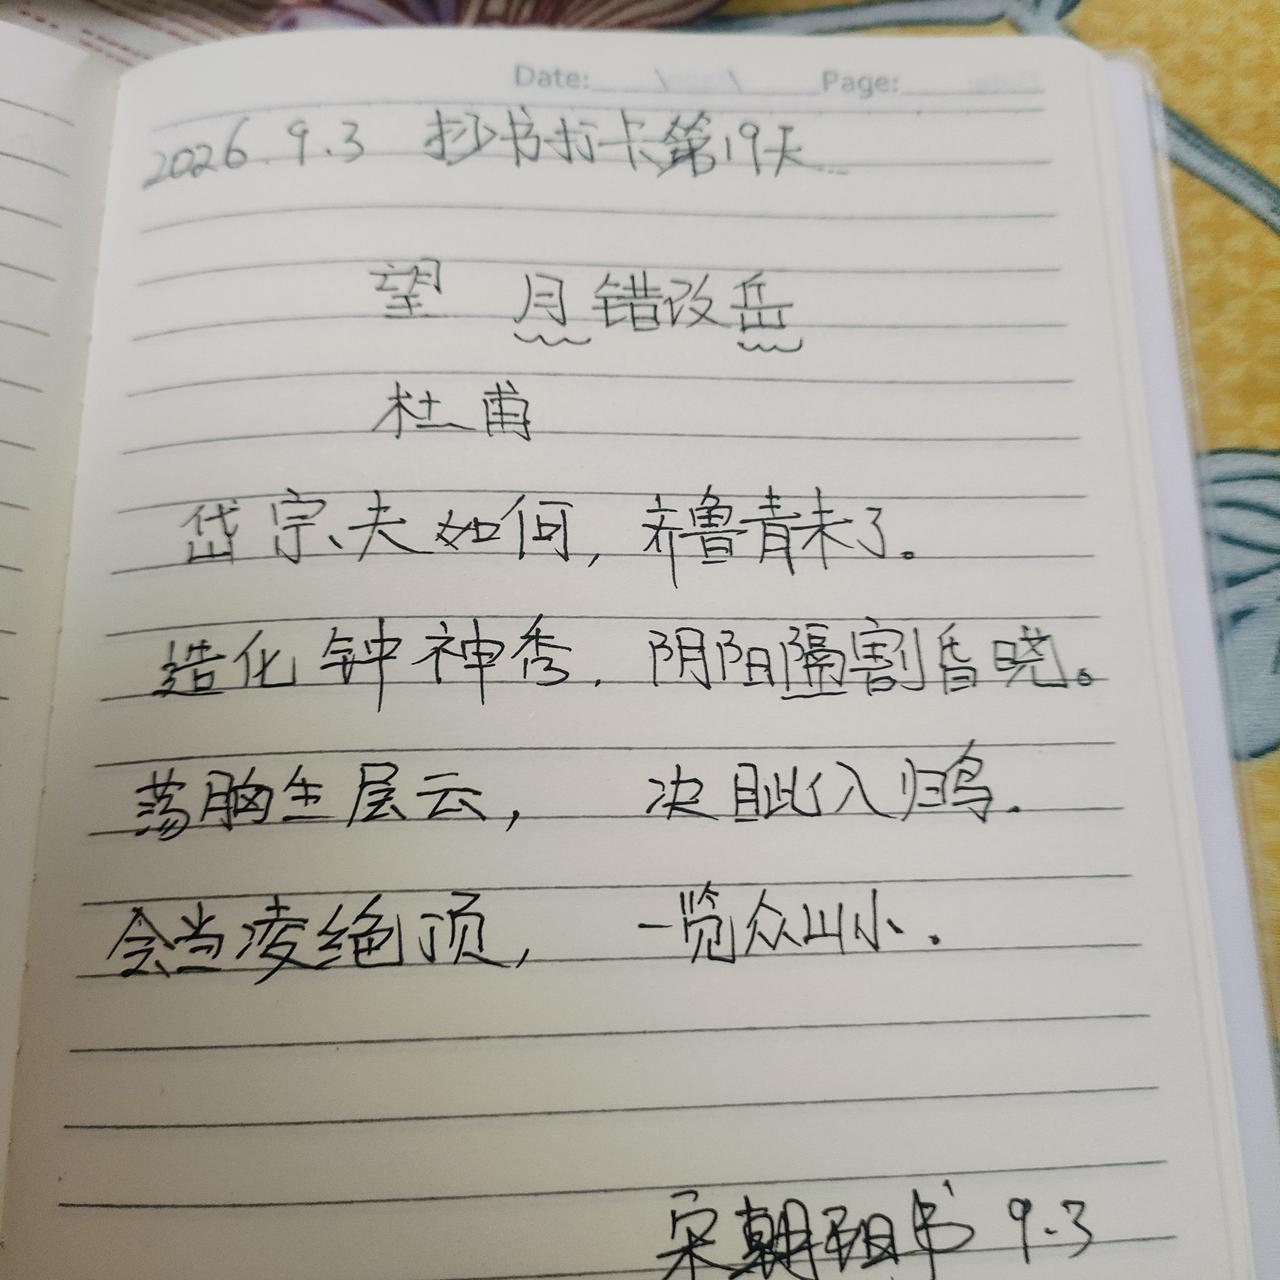 Date: Page:
2026.9.3 抄书打卡第19天
望 月错改岳
杜甫
岱宗夫如何,齐鲁青未了。
造化钟神秀.阴阳隔割昏晓。
荡胸生层云, 决眦入归鸟.
会当凌绝顶, 一览众山小.
书 9.3